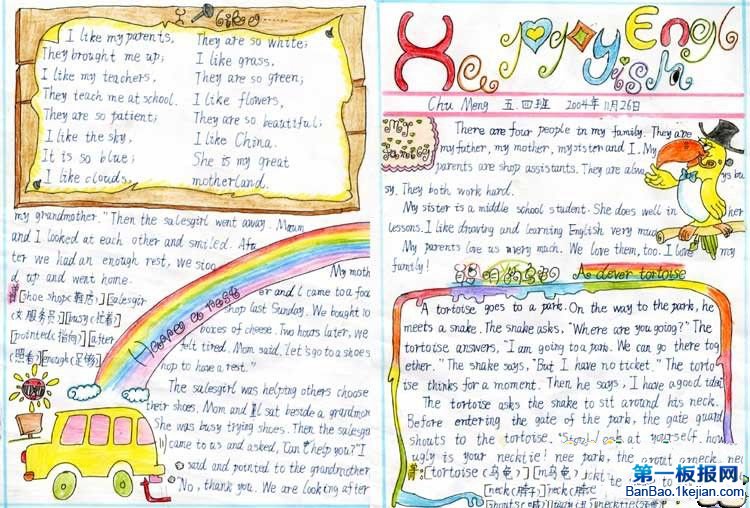 I like...
I like my parents,
They brought me up;
I like my teachers,
They teach me at school.
They are so patient;
I like the sky,
It is so blue;
I like clouds,
They are so white;
I like grass,
They are so green;
I like flowers,
They are so beautiful;
I like China.
She is my great
motherland.
my grandmother." Then the salesgirl went away. Mum
and I looked at each other and smiled. Af
ter we had an enough rest, we stoo
d up and went home.
[shoe shop(鞋店)][salesgir
(女服务员)][busy(忙着)]
[pointed(指向)][after
(照看)][enough(足够)]
Have a rest
My moth
er and I came to a foo
shop last Sunday. We bought 10
boxes of cheese. Two hours later, we
felt tired. Mom said. Let's go to a shoes
hop to have a rest."
The salesgirl was helping others choose
their shoes. Mom and I sat beside a grandmom
She was busy trying shoes. Then the salesgi
came to us and asked, "Can I help you?" I
said and pointed to the grandmother
"No, thank you. We are looking after
Happy English
Chu Meng 五四班 2004年11月26日
My
family
There are four people in my family. They are
my father, my mother, my sister and I. My
parents are shop assistants. They are alway
ys bu
sy. They both work hard.
My sister is a middle school student. She does well in her
lessons. I like drawing and learning English very much
My parents love us very much. We love them, too. I love my
family!
聪明的乌龟 A clever tortoise
A tortoise goes to a park. On the way to the park, he
meets a snake. The snake asks, "Where are you going?" The
tortoise answers, "I am going to a park. We can go there tog
ether." The snake says, "But I have no ticket." The torto
ise thinks for a moment. Then he says, I have a good idea!
The tortoise asks the snake to sit around his neck.
Before entering the gate of the park, the gate guard
shouts to the tortoise. "Look at yourself. how
ugly is your necktie!
[tortoise(乌龟)]
[neck(脖子)]
第一板报网
BanBao.1kejian.com